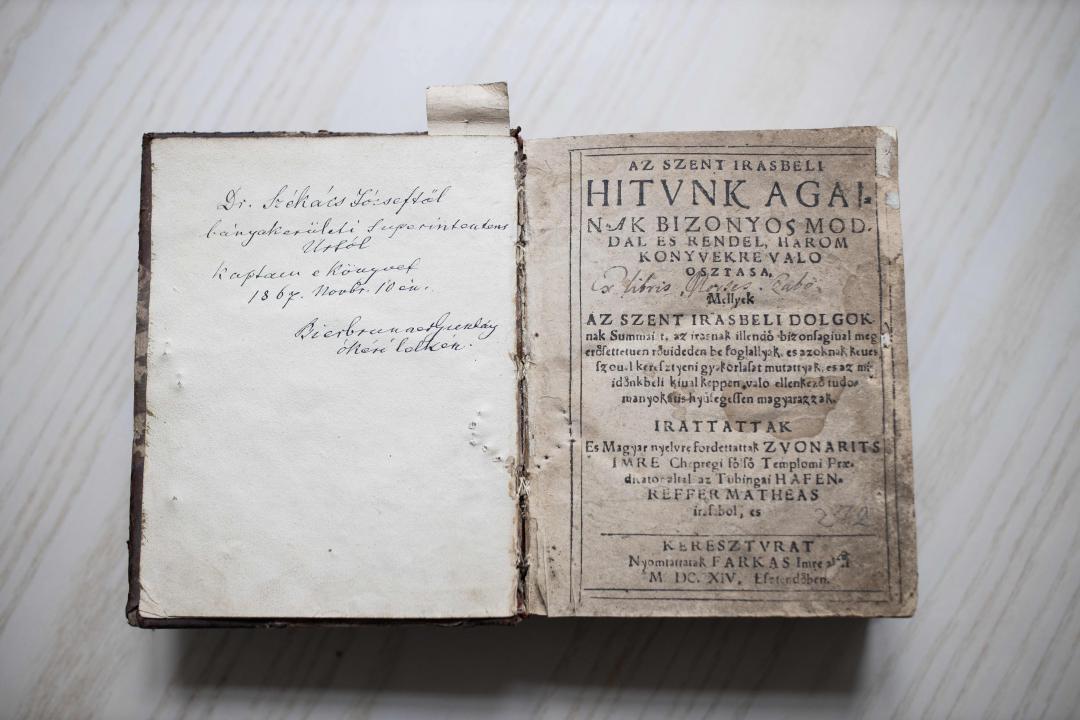 Dr. Székács Józseftől
bányakerületi Superintendens
Úrtól
kaptam e könyvet
1867. Novbr. 10 én.
AZ SZENT IRASBELI
HITVNK AGAI-
NAK BIZONYOS MOD-
DAL ES RENDEL, HAROM
KONYVEKRE VALO
OSZTASA,
Ex libris Moyses Szabó.
Mellyek
AZ SZENT IRASBELI DOLGOK-
nak Summait, az irasnak illendő bizonsagiual meg
erősettetuen rőuideden be foglallyak, es azoknak keues
szoual keresztyeni gyakorlasat mutattyak, es az mi
időnkbeli kiual keppen valo ellenkező tudo-
manyokatis hyűsegessen magyarazzak.
IRATTATTAK
Es Magyar nyelvre fordettattak ZVONARITS
IMRE Chepregi fölső Templomi Præ-
dikator által az Tubingai HAFEN-
REFFER MATHEAS
irasabol, es
272
KERESZTVRAT
Nyomtattatak FARKAS Imre által
M DC. XIV. Esztendőben.